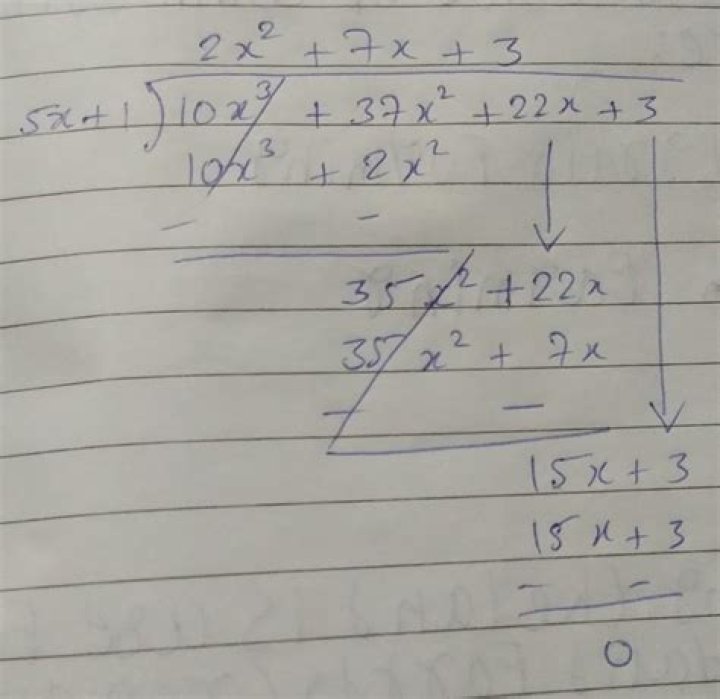 2x² + 7x + 3
5x+1)10x³ + 37x² + 22x + 3
10x³ + 2x²
- -
35x² + 22x
35x² + 7x
- -
15x + 3
15x + 3
- -
0